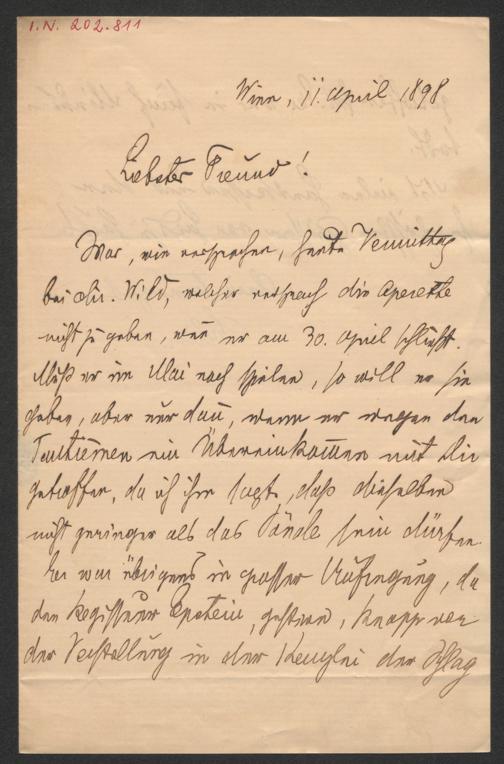 I.N. 202.811
Wien, 11. April 1898
Liebster Freund!
War, wie versprochen, heute Vormittag
bei Dir. Wild, welcher versprach die Operette
nicht zu geben, wenn er am 30. April schließt.
Muß er im Mai noch spielen, so will er sie
geben, aber nur dann, wenn er wegen den
Tantiemen ein Übereinkommen mit Dir
getroffen, da ich ihm sagte, daß dieselben
nicht geringer als das Pände sein dürfen.
Er war übrigens in grosser Aufregung, da
den Regisseur Epstein, gestern, knapp vor
der Vorstellung in der Kanzlei der Schlag